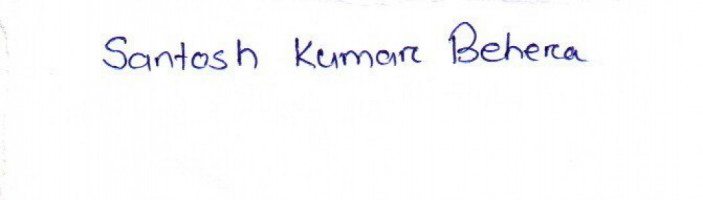 Santosh Kumar Behera